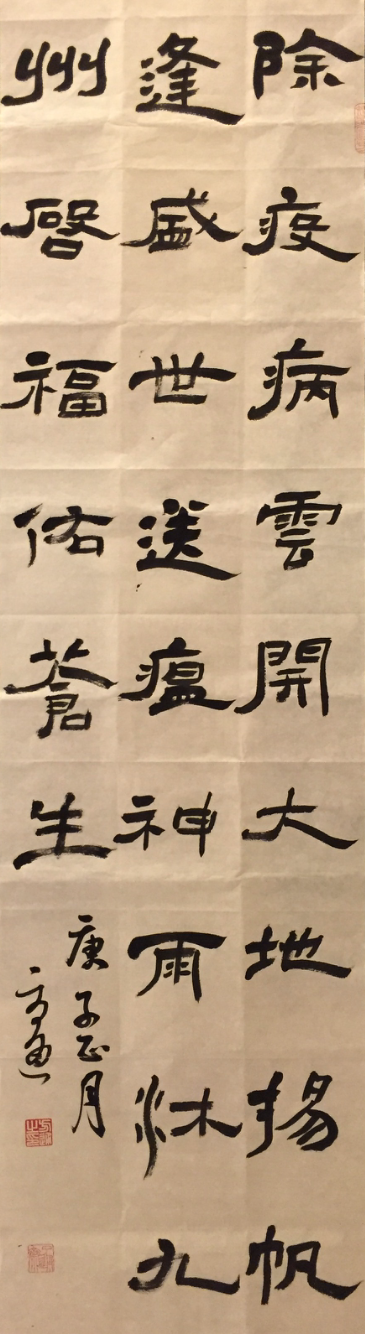 除疫病雲開大地揚帆
逢盛世送瘟神雨沐九
州啓福佑蒼生
庚子正月